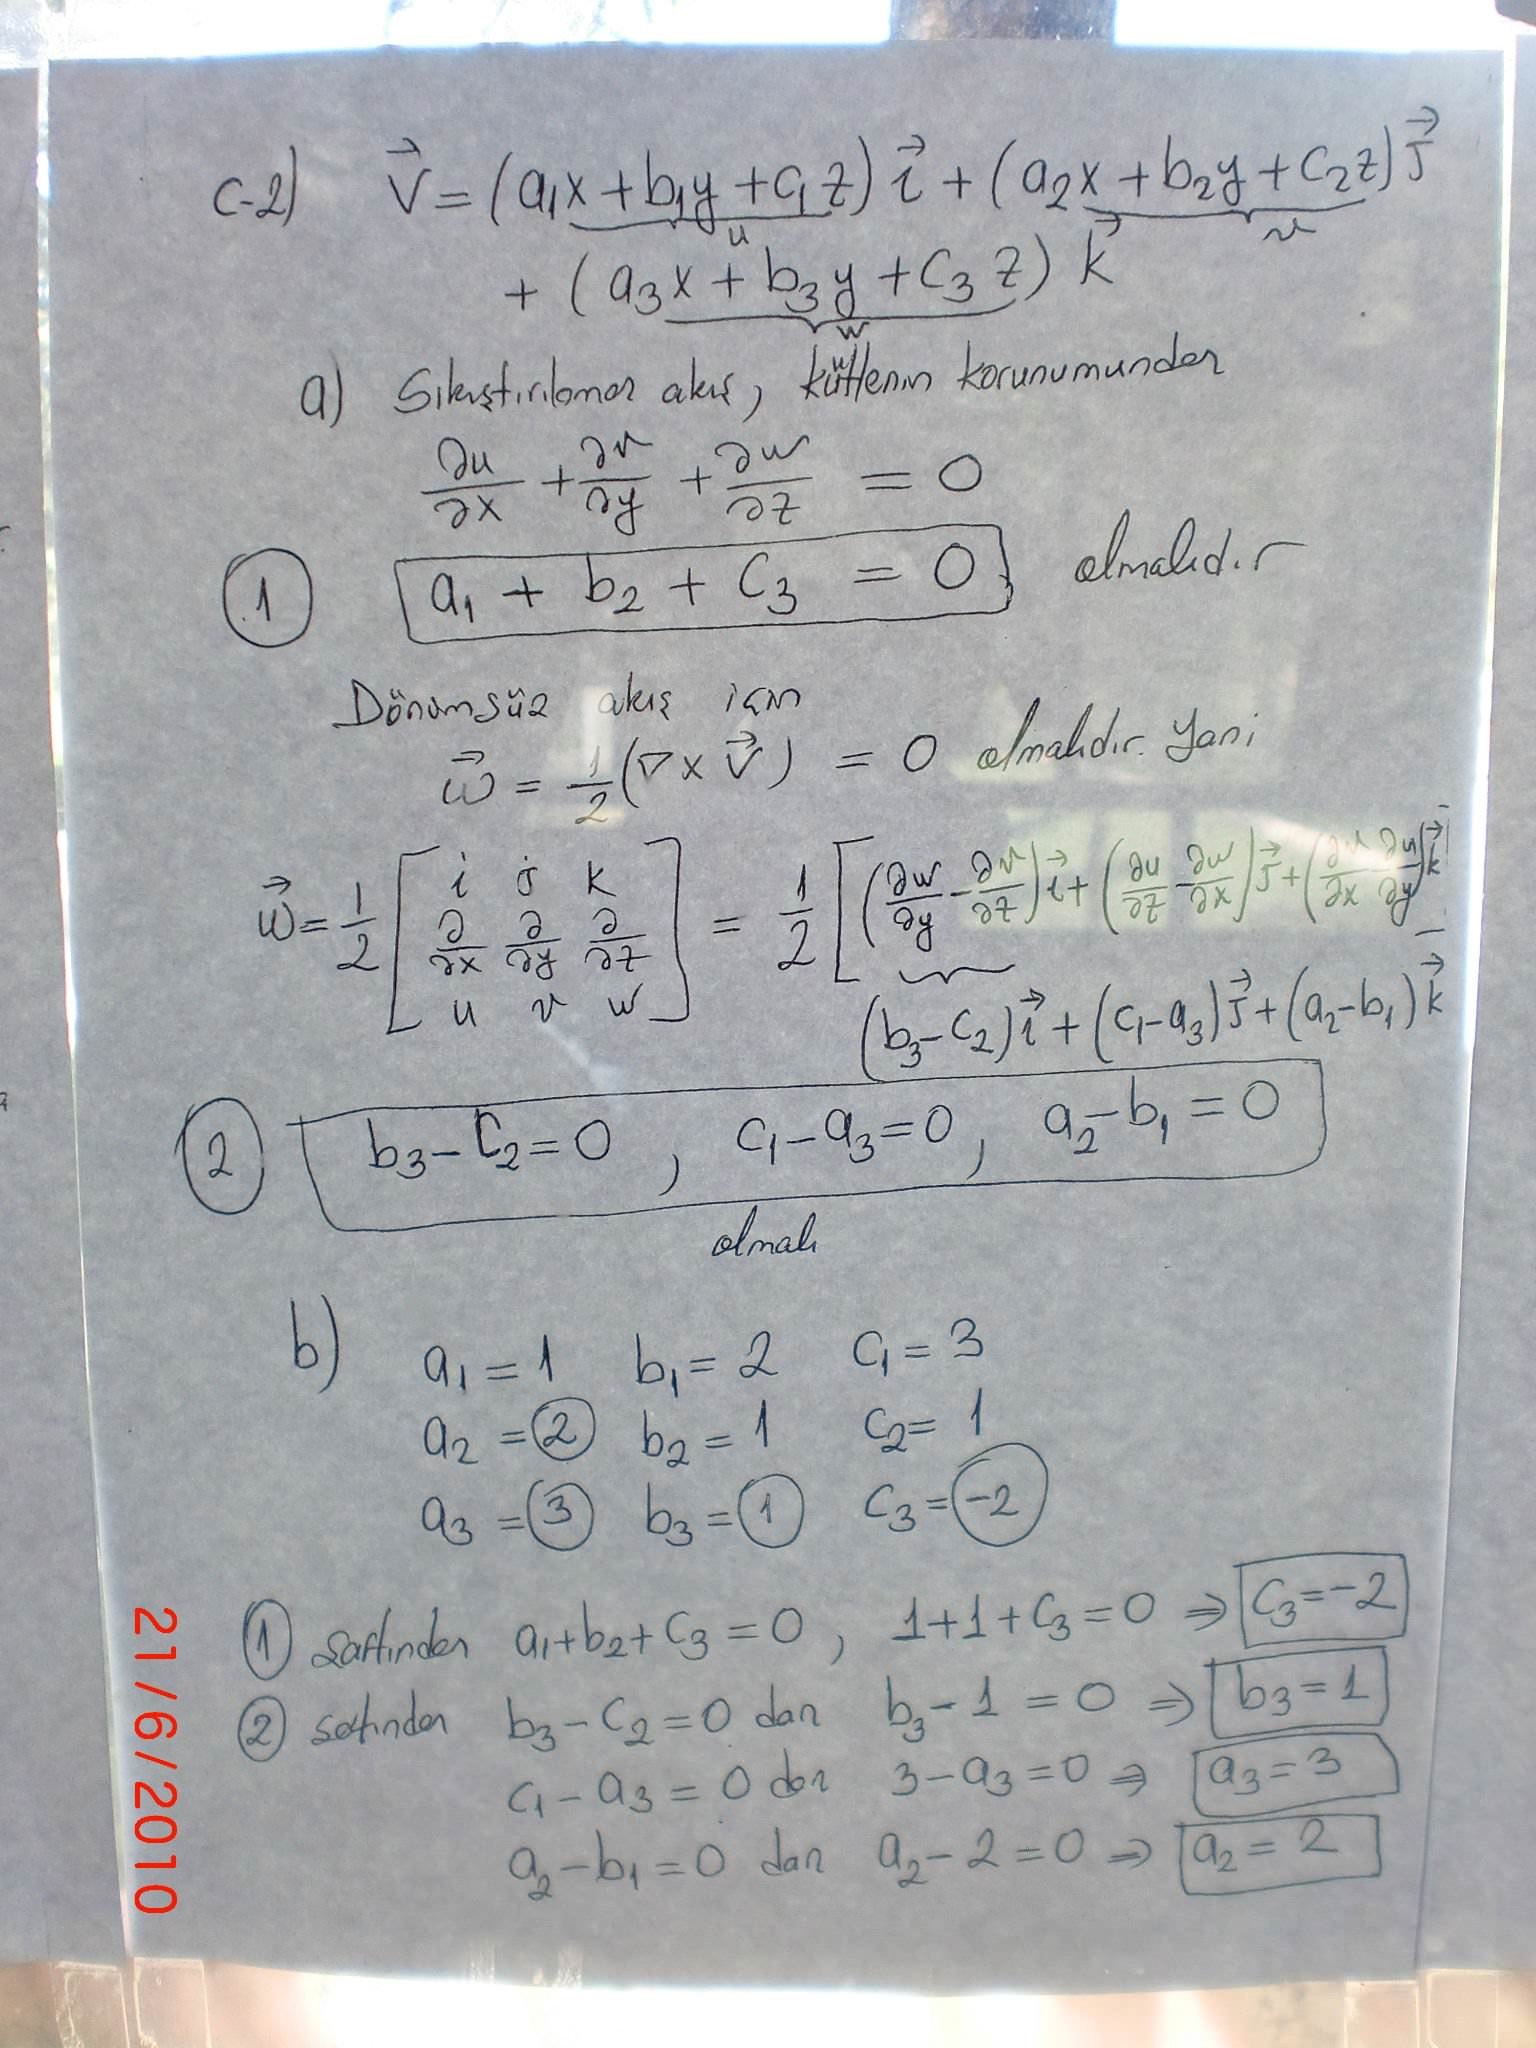 C-2) V⃗ = (a₁x + b₁y + c₁z) i⃗ + (a₂x + b₂y + c₂z) j⃗
u v
+ (a₃x + b₃y + c₃z) k⃗
w
a) Sıkıştırılamaz akış, kütlenin korunumundan
∂u/∂x + ∂v/∂y + ∂w/∂z = 0
① a₁ + b₂ + c₃ = 0 olmalıdır
Dönümsüz akış için
ω⃗ = 1/2 (∇ x V⃗) = 0 olmalıdır. Yani
ω⃗ = 1/2 [i j k ; ∂/∂x ∂/∂y ∂/∂z ; u v w] = 1/2 [(∂w/∂y - ∂v/∂z) i⃗ + (∂u/∂z - ∂w/∂x) j⃗ + (∂v/∂x - ∂u/∂y) k⃗]
(b₃-c₂) i⃗ + (c₁-a₃) j⃗ + (a₂-b₁) k⃗
② b₃-c₂=0 , c₁-a₃=0 , a₂-b₁=0
olmalı
b) a₁ = 1 b₁ = 2 c₁ = 3
a₂ = 2 b₂ = 1 c₂ = 1
a₃ = 3 b₃ = 1 c₃ = -2
① şartından a₁+b₂+c₃ = 0 , 1+1+c₃ = 0 ⇒ c₃ = -2
② şartından b₃-c₂ = 0 dan b₃-1 = 0 ⇒ b₃ = 1
c₁-a₃ = 0 dan 3-a₃ = 0 ⇒ a₃ = 3
a₂-b₁ = 0 dan a₂-2 = 0 ⇒ a₂ = 2
21/6/2010